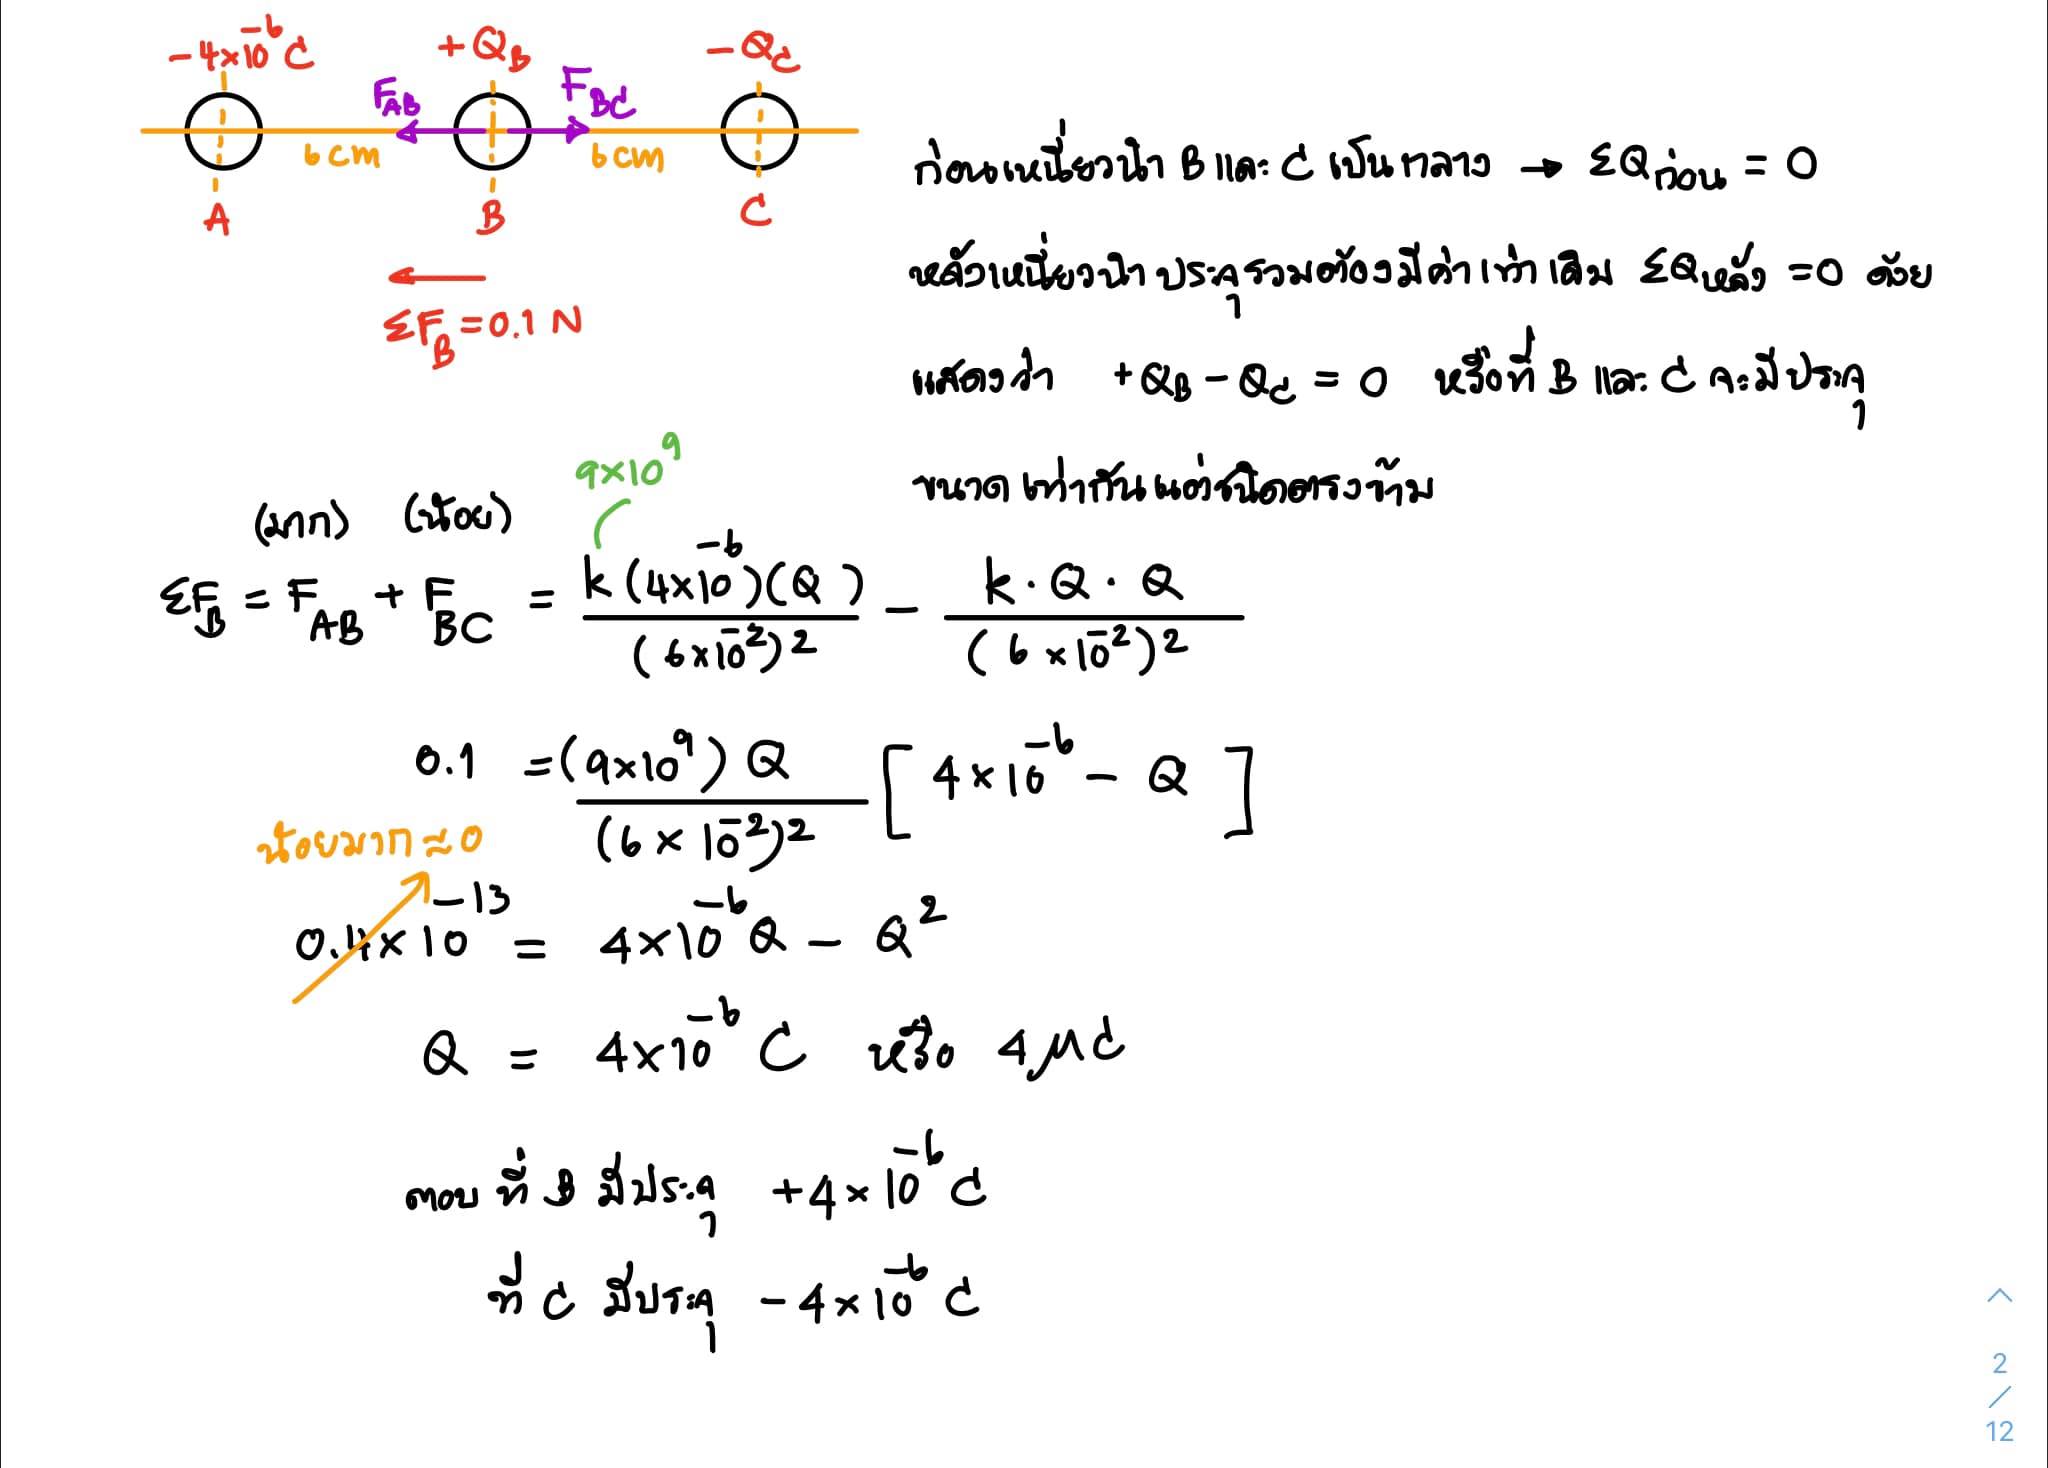 -4×10⁻⁶C +Q_B -Q_C
F_AB F_BC
6cm 6cm
A B C
ΣF_B = 0.1 N
ก่อนเหนี่ยวนำ B และ C เป็นกลาง → ΣQก่อน = 0
หลังเหนี่ยวนำ ประจุรวมต้องมีค่าเท่าเดิม ΣQหลัง = 0 ด้วย
แสดงว่า +Q_B - Q_C = 0 หรือที่ B และ C จะมีประจุ
ขนาดเท่ากันแต่ชนิดตรงข้าม
9×10⁹
(มาก) (น้อย)
ΣF_B = F_AB + F_BC = k(4×10⁻⁶)(Q)/(6×10⁻²)² - k·Q·Q/(6×10⁻²)²
0.1 = (9×10⁹)Q/(6×10⁻²)² [4×10⁻⁶ - Q]
น้อยมาก ≈ 0
0.4×10⁻¹³ = 4×10⁻⁶Q - Q²
Q = 4×10⁻⁶ C หรือ 4μC
ตอบ ที่ B มีประจุ +4×10⁻⁶C
ที่ C มีประจุ -4×10⁻⁶C
2
/
12